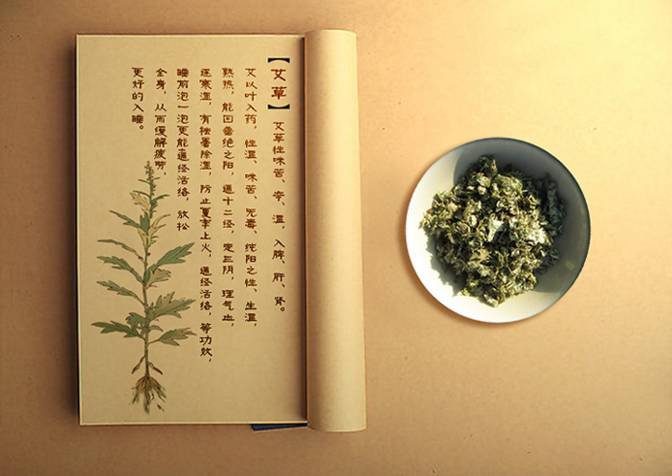 【艾草】艾草性味苦、辛、温,入脾、肝、肾。
艾以叶入药,性温、味苦、无毒、纯阳之性、生温,
熟热,能回垂绝之阳,通十二经,走三阴,理气血,
逐寒湿,有独暑除湿,防止夏季上火,通经活络,等功效,
睡前泡一泡更能通经活络,放松
全身,从而缓解疲劳,
更好的入睡。